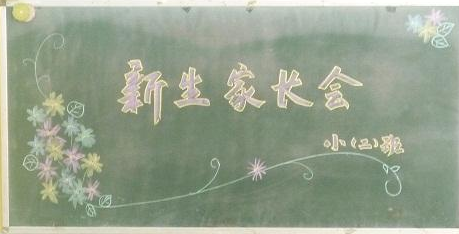 新生家长会
小(二)班